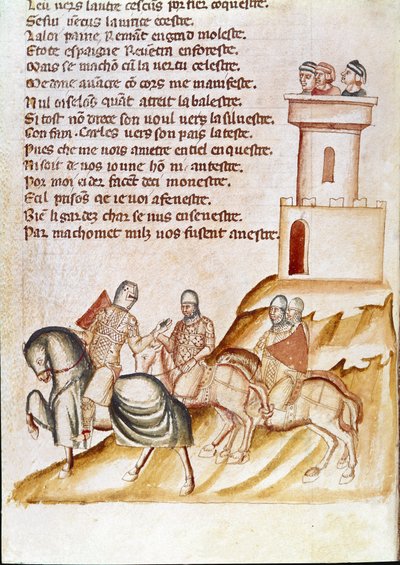 Leu vers lautre cescus por fier coquestre.
Sesu vertus lavitice cestre.
Valoi paine Remant engend moleste.
Etote espaigne Revertin enforeste.
Mais se macho cu la vertu celestre.
Me done avantre co cors me manifeste.
Nul oiselos quant atreit la balestre.
Si tost no droce son voul vers la silvestre.
Con firu Carles vers son pais la teste.
Pues che me nos amette en tiel enquestre.
Ni soit de nos ioune hom ni antestre.
Por moi eider facent deci monestre.
E cil prisons qe ie voi a fenestre.
Bie li gardez char se nus en senestre.
Par machomet milz vos fusent anestre.